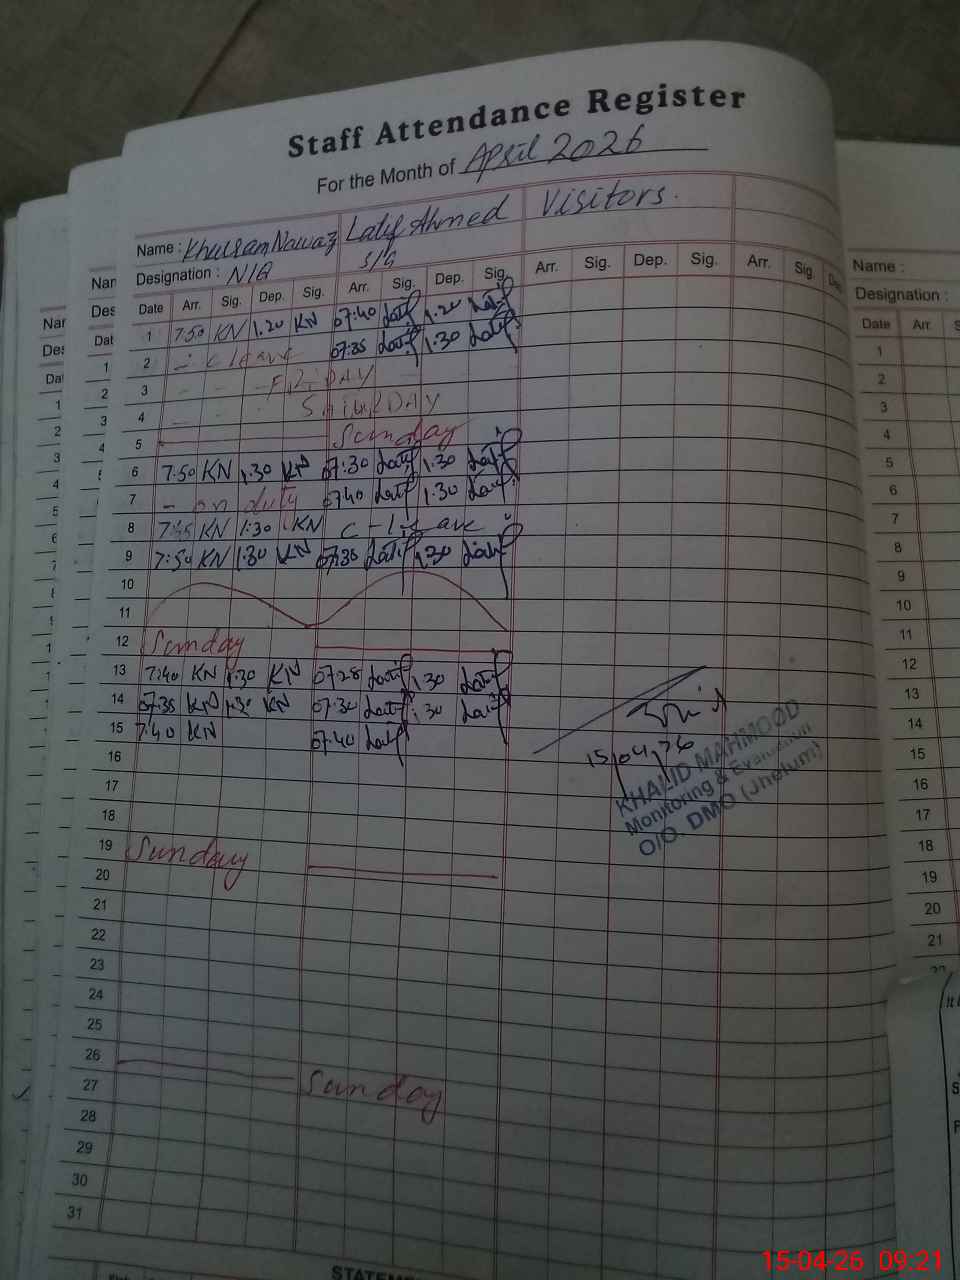 Staff Attendance Register
For the Month of April 2026
Name : Khurram Nawaz Latif Ahmed Visitors.
Designation : N/Q S/G
Date Arr. Sig. Dep. Sig. Arr. Sig. Dep. Sig. Arr. Sig. Dep. Sig. Arr. Sig. Dep
1 7:50 KN 1.20 KN 07:40 Latif 1.20 Latif
2 - C leave 07:35 Latif 1.30 Latif
3 - - - FRIDAY
4 - SATURDAY
5 Sunday
6 7:50 KN 1:30 KN 07:30 Latif 1.30 Latif
7 - on duty 07:40 Latif 1.30 Latif
8 7:45 KN 1:30 KN C - Leave
9 7:50 KN 1:30 KN 07:35 Latif 1.30 Latif
10
11
12 Sunday
13 7:40 KN 1:30 KN 07:28 Latif 1.30 Latif
14 07:35 KN 1:30 KN 07:30 Latif 1.30 Latif
15 7:40 KN 07:40 Latif
16
17
18
19 Sunday
20
21
22
23
24
25
26 Sunday
27
28
29
30
31
15/04/26
KHALID MAHMOOD
Monitoring & Evaluation
O/O. DMO (Jhelum)
STATEM
Name :
Designation :
Date Arr.
1
2
3
4
5
6
7
8
9
10
11
12
13
14
15
16
17
18
19
20
21
15-04-26 09:21